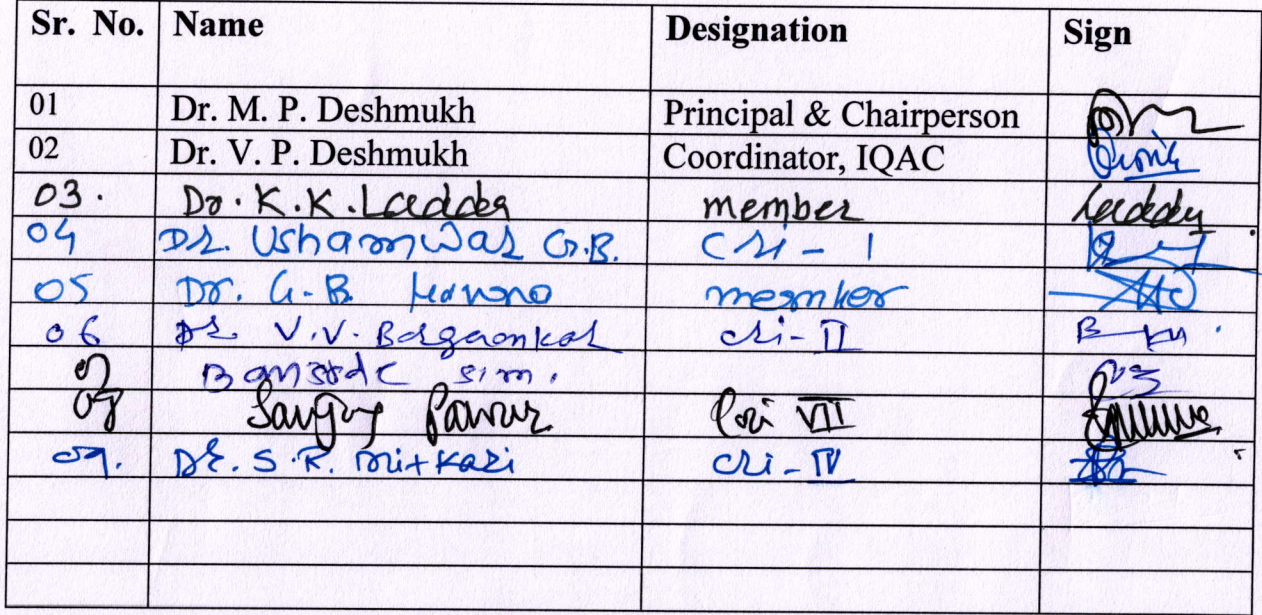 Sr. No. Name Designation Sign
01 Dr. M. P. Deshmukh Principal & Chairperson
02 Dr. V. P. Deshmukh Coordinator, IQAC
03. Dr. K.K. Laddha member
04 Dr. Ushamwar G.B. Cri - I
05 Dr. G.B.
06 Dr. V.V. Borgaonkar cri-II
07 Bansode S.M.
08 Sanjay Pawar Cri VII
09. Dr. S.R. Mitkari cri-IV